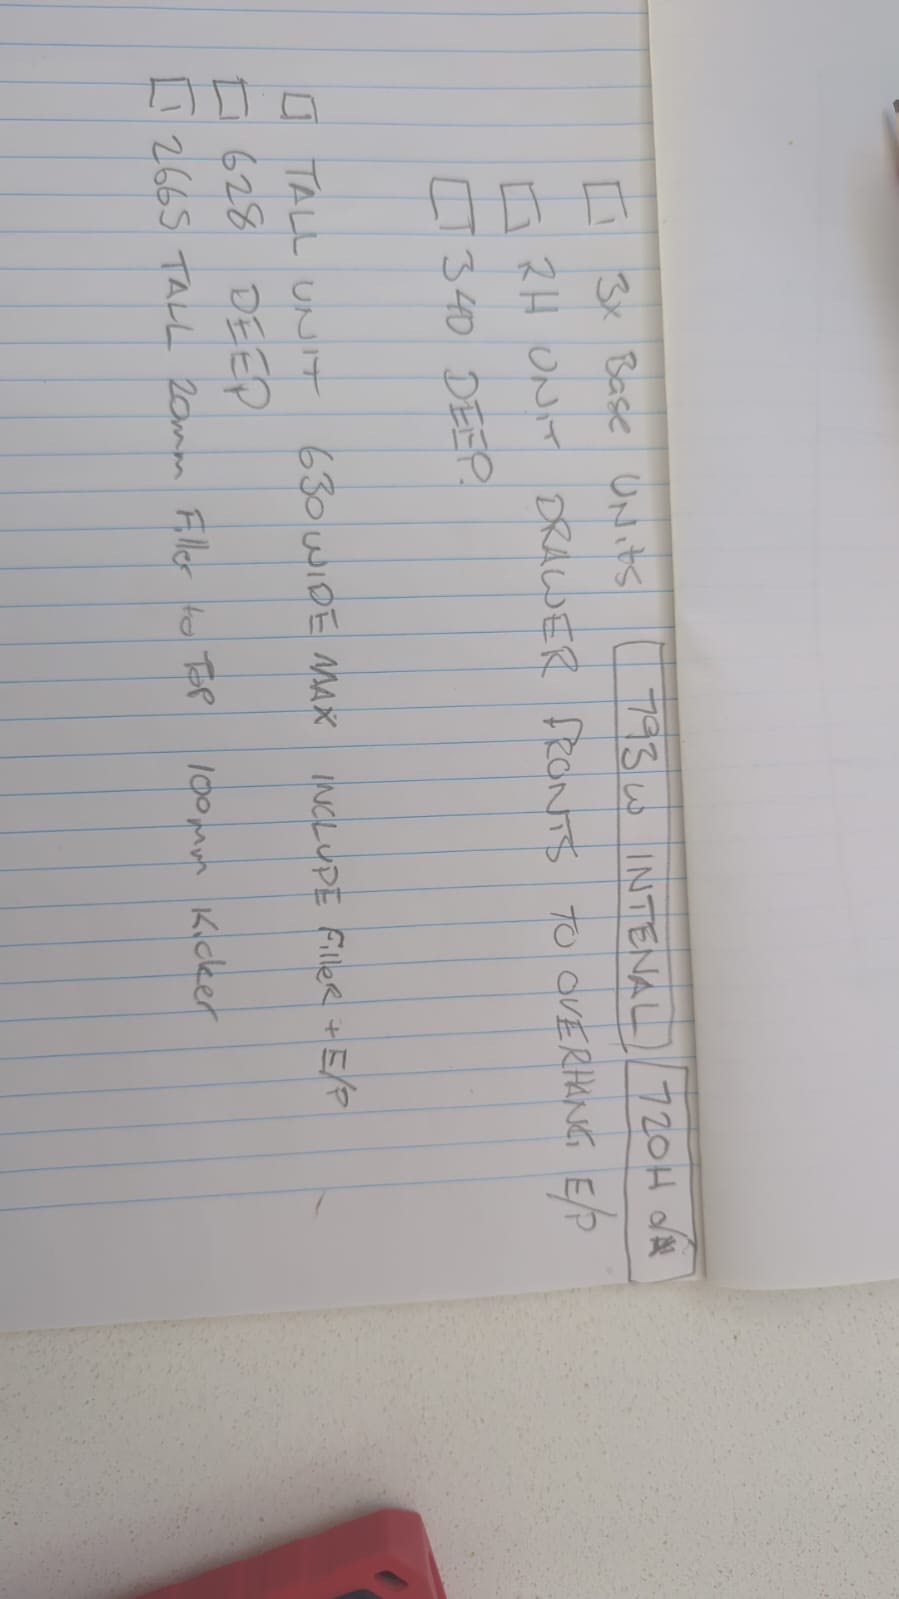 3x Base UNits 793w INTENAL 720H
RH UNIT DRAWER FRONTS TO OVERHANG E/P
340 DEEP.
TALL UNIT 630 WIDE MAX INCLUDE FilleR + E/P
628 DEEP
2665 TALL 20mm Filler to TOP 100mm Kicker